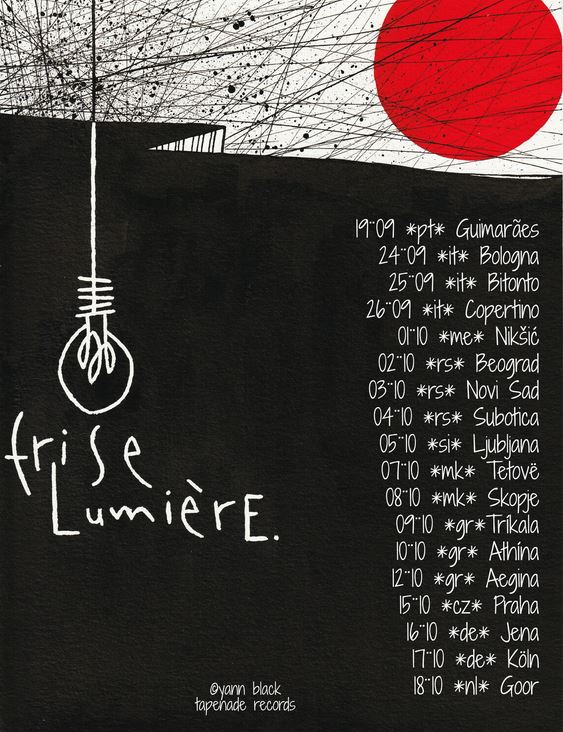 19¨09 *pt* Guimarães
24¨09 *it* Bologna
25¨09 *it* Bitonto
26¨09 *it* Copertino
01¨10 *me* Nikšić
02¨10 *rs* Beograd
03¨10 *rs* Novi Sad
04¨10 *rs* Subotica
05¨10 *si* Ljubljana
07¨10 *mk* Tetovë
08¨10 *mk* Skopje
09¨10 *gr*Tríkala
10¨10 *gr* Athína
12¨10 *gr* Aegina
15¨10 *cz* Praha
16¨10 *de* Jena
17¨10 *de* Köln
18¨10 *nl* Goor
frise
LumièrE.
©yann black
tapenade records